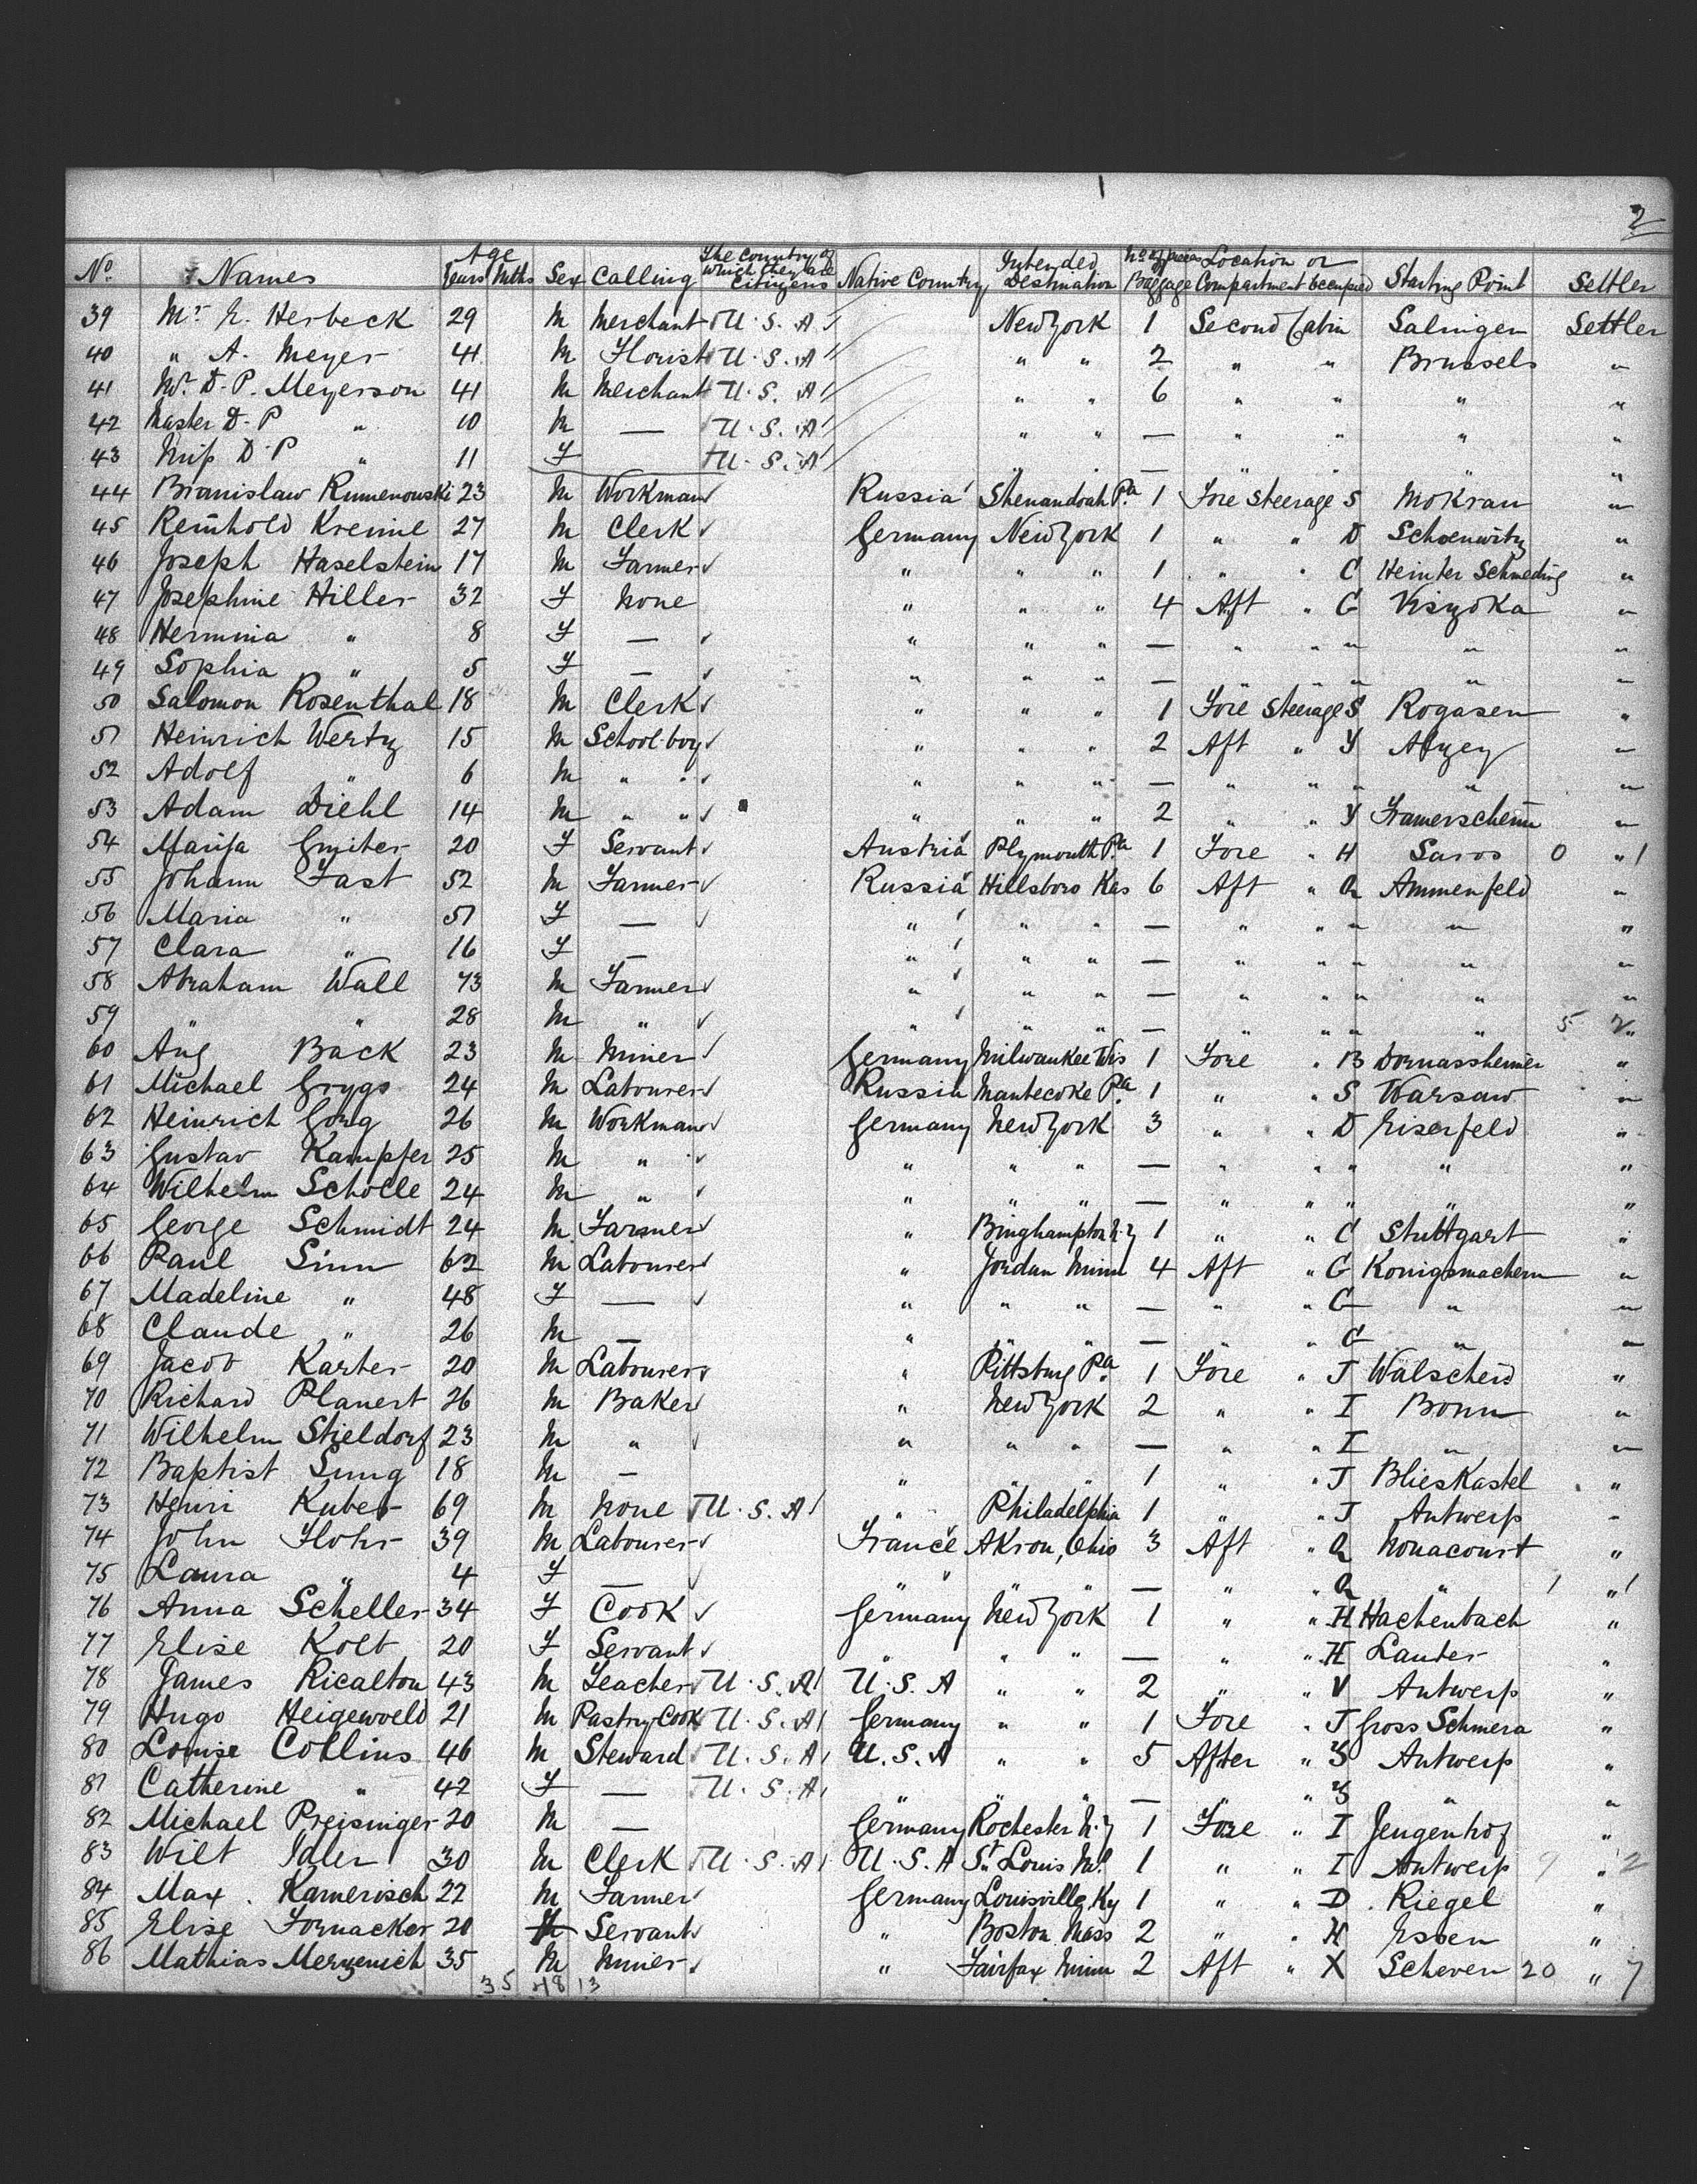 2
No. Names Age Years Mths Sex Calling The Country of which they are Citizens Native Country Intended Destination No. of pieces Baggage Location or Compartment occupied Starting Point Settler
39 Mr. E. Herbeck 29 M Merchant U.S.A New York 1 Second Cabin Salingen Settler
40 " A. Meyer 41 M Florist U.S.A " " 2 " " Brussels "
41 Mr. D.P. Meyerson 41 M Merchant U.S.A " " 6 " " " "
42 Master D.P " 10 M — U.S.A " " — " " " "
43 Miss D.P " 11 F U.S.A " " — " " " "
44 Branislaw Rumenowski 23 M Workman Russia Shenandoah Pa. 1 Fore Steerage S Mokran "
45 Reinhold Kremie 27 M Clerk Germany New York 1 " " D Schoenwitz "
46 Joseph Haselstein 17 M Farmer " " " 1 " " C Heinter Schmeding "
47 Josephine Hiller 32 F None " " " 4 Aft " G Viszoka "
48 Hermina " 8 F — " " " — " " " " "
49 Sophia " 5 F — " " " — " " " " "
50 Salomon Rosenthal 18 M Clerk " " " 1 Fore Steerage S Rogasen "
51 Heinrich Wertz 15 M School-boy " " " 2 Aft " Y Alzey "
52 Adolf " 6 M " " " " " — " " " " "
53 Adam Diehl 14 M " " " " " 2 " " Y Framerscheim "
54 Marija Gmiter 20 F Servant Austria Plymouth Pa. 1 Fore " H Saros 0 " 1
55 Johann Fast 52 M Farmer Russia Hillsboro Kas 6 Aft " Q Ammenfeld "
56 Maria " 51 F — " " " — " " " " "
57 Clara " 16 F — " " " — " " " " "
58 Abraham Wall 73 M Farmer " " " — " " " " "
59 " " 28 M " " " " — " " " " 5 2 "
60 Aug Back 23 M Miner Germany Milwaukee Wis 1 Fore " B Dornassheimer "
61 Michael Grygs 24 M Labourer Russia Nantecoke Pa. 1 " " S Warsaw "
62 Heinrich Gorg 26 M Workman Germany New York 3 " " D Eiserfeld "
63 Gustav Kampfer 25 M " " " " — " " " " "
64 Wilhelm Scholle 24 M " " " " — " " " " "
65 George Schmidt 24 M Farmer " Binghampton N.Y 1 " " C Stuttgart "
66 Paul Sinn 62 M Labourer " Jordan Minn 4 Aft " G Konigsmachern "
67 Madeline " 48 F — " " " — " " G " "
68 Claude " 26 M — " " " — " " G " "
69 Jacob Karher 20 M Labourer " Pittsburg Pa. 1 Fore " J Walscheid "
70 Richard Planert 26 M Baker " New York 2 " " I Bonn "
71 Wilhelm Stieldorf 23 M " " " " — " " I " "
72 Baptist Sung 18 M — " " " 1 " " J Blieskastel "
73 Henri Kuber 69 M None U.S.A " Philadelphia 1 " " J Antwerp "
74 John Flohr 39 M Labourer France Akron, Ohio 3 Aft " Q Nonacourt "
75 Laura " 4 F — " " " — " " Q " 1 " 1
76 Anna Scheller 34 F Cook Germany New York 1 " " H Hachenbach "
77 Elise Kolb 20 F Servant " " " — " " H Lauter "
78 James Ricalton 43 M Teacher U.S.A U.S.A " " 2 " " V Antwerp "
79 Hugo Heigeweld 21 M Pastry Cook U.S.A Germany " " 1 Fore " J Gross Schmera "
80 Louise Collins 46 M Steward U.S.A U.S.A " " 5 After " Y Antwerp "
81 Catherine " 42 F — U.S.A " " " — " " Y " "
82 Michael Preisinger 20 M — Germany Rochester N.Y 1 Fore " I Jengenhof "
83 Wilt Idler 30 M Clerk U.S.A U.S.A St. Louis Mo. 1 " " I Antwerp 9 " 2
84 Max. Kamerisch 22 M Farmer Germany Louisville, Ky 1 " " D Riegel "
85 Elise Fornacker 20 Servant " Boston Mass 2 " " H Essen "
86 Mathias Merzenich 35 M Miner " Fairfax Minn 2 Aft " X Scheven 20 " 7
35 48 13